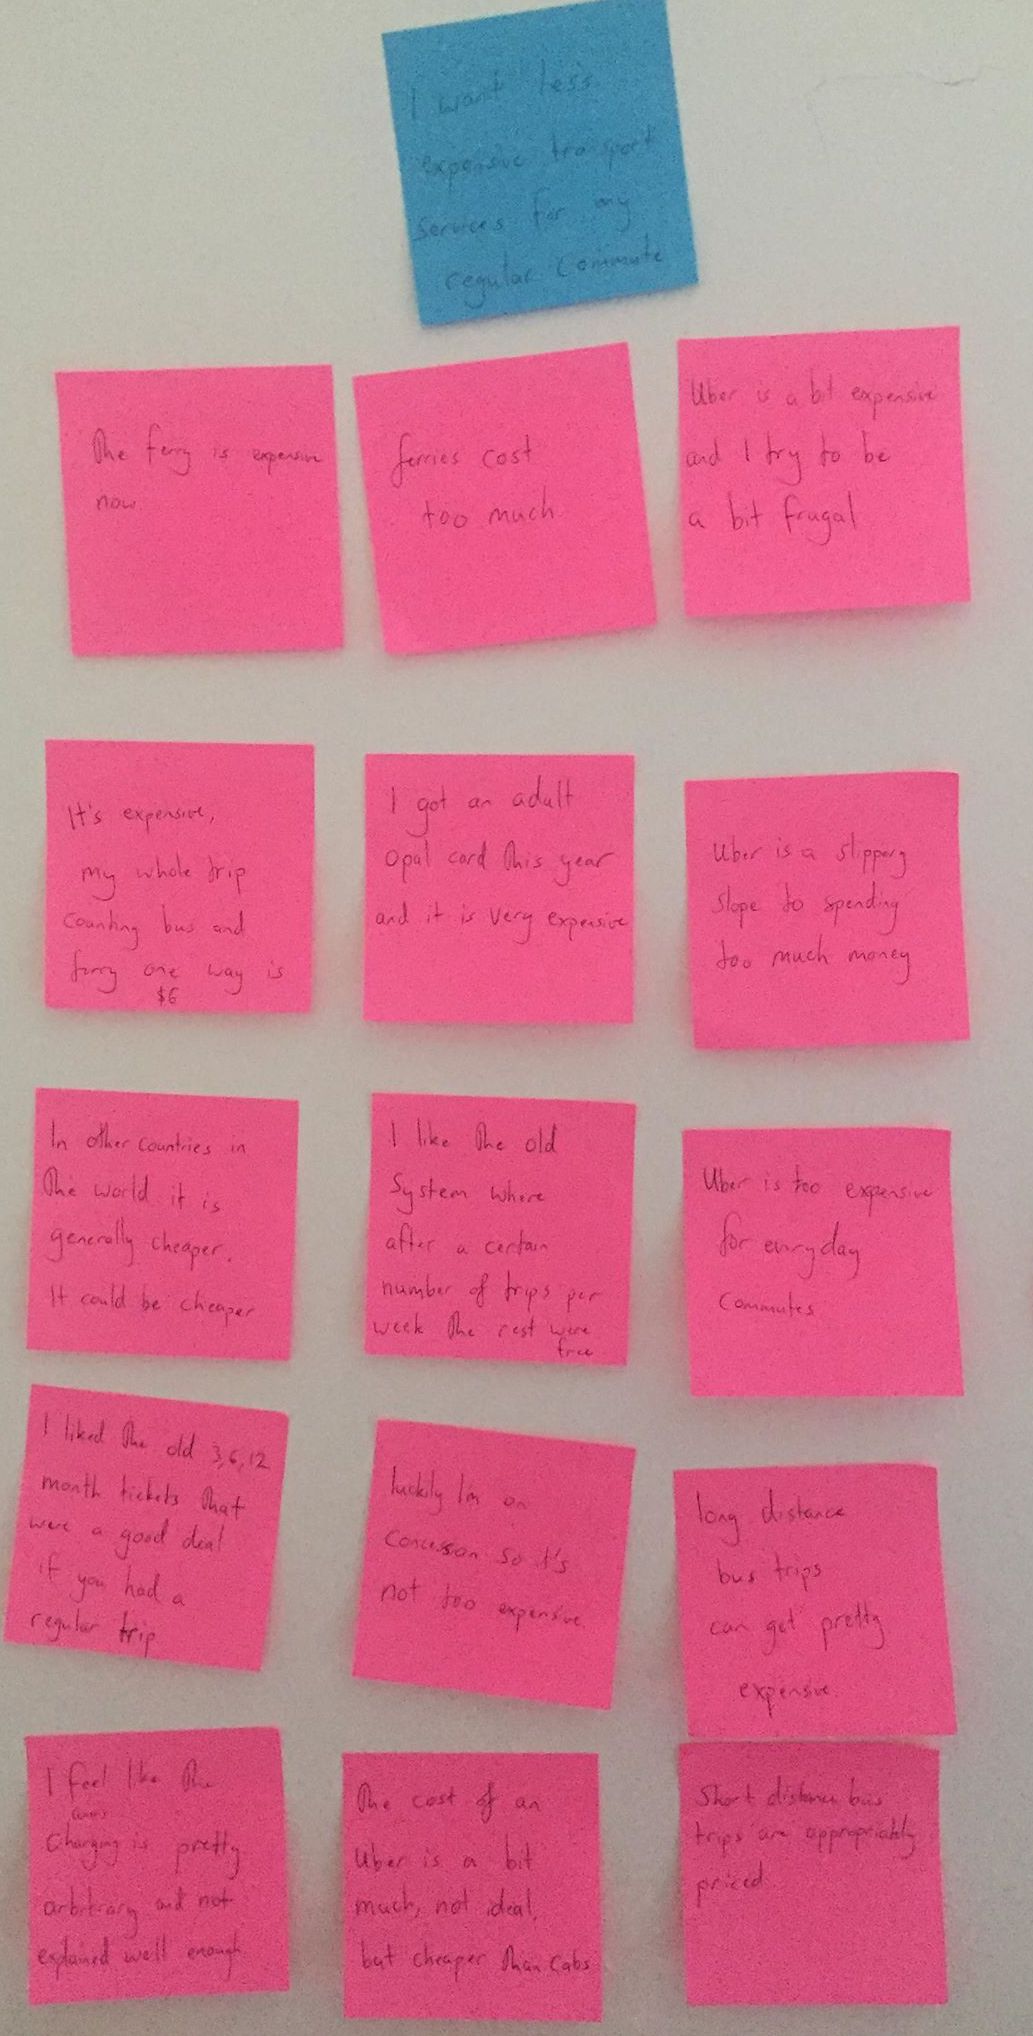 I want less
expensive transport
services for my
regular commute
The ferry is expensive
now
ferries cost
too much
Uber is a bit expensive
and I try to be
a bit frugal
It's expensive,
my whole trip
counting bus and
ferry one way is
$6
I got an adult
opal card this year
and it is very expensive
Uber is a slippery
slope to spending
too much money
In other countries in
the world it is
generally cheaper.
It could be cheaper
I like the old
system where
after a certain
number of trips per
week the rest were
free
Uber is too expensive
for everyday
commutes
I liked the old 3,6,12
month tickets that
were a good deal
if you had a
regular trip
luckily I'm on
concession so it's
not too expensive
long distance
bus trips
can get pretty
expensive
I feel like the
charging is pretty
arbitrary and not
explained well enough
The cost of an
Uber is a bit
much, not ideal,
but cheaper than cabs
Short distance bus
trips are appropriately
priced